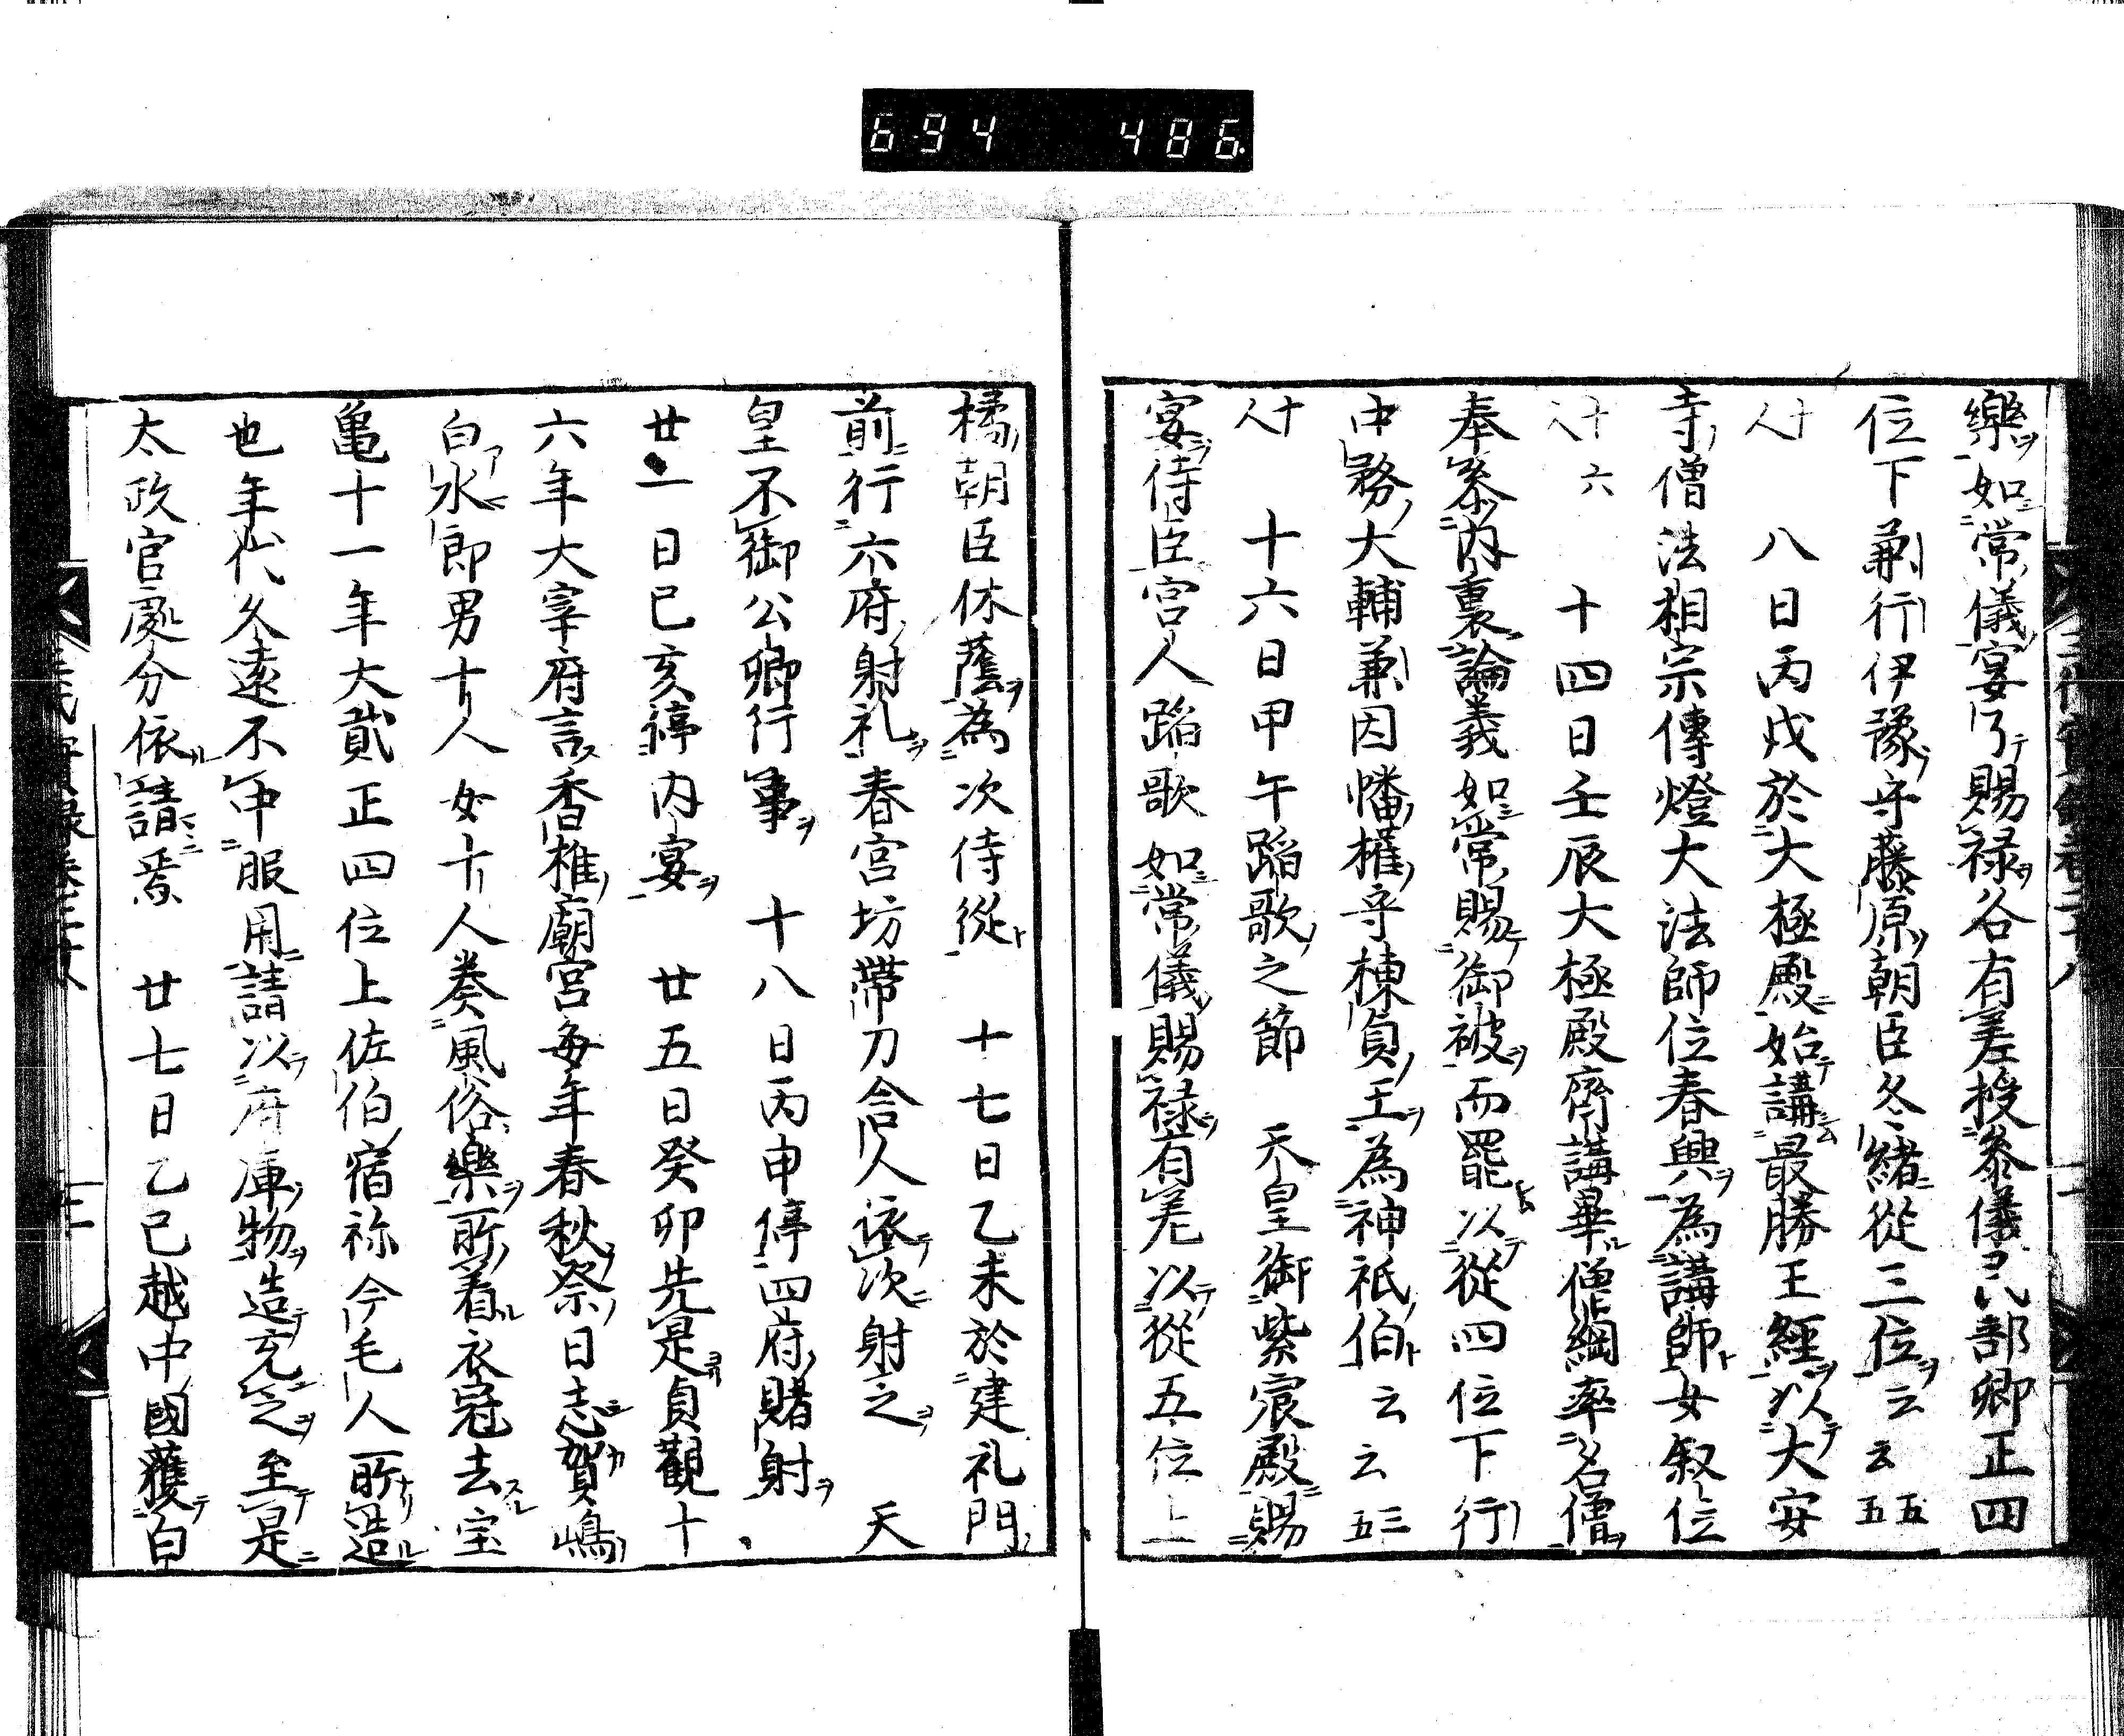 694 486
樂如常儀宴了賜禄各有差授參儀民部卿正四
位下兼行伊豫守藤原朝臣冬緒從三位云云五五
十人 八日丙戌於大極殿始講最勝王經以大安
寺僧法相宗傳燈大法師位春興為講師女叙位
十六人 十四日壬辰大極殿齊講畢僧綱率名僧
奉參內裏論義如常賜御被而罷以從四位下行
中務大輔兼因幡權守棟貞王為神祇伯云云三五
十人 十六日甲午蹈歌之節 天皇御紫宸殿賜
宴侍臣宮人蹈歌如常儀賜禄有差以從五位上
橘朝臣休蔭為次侍從 十七日乙未於建礼門
前行六府射礼春宮坊帶刀舎人依次射之 天
皇不御公卿行事 十八日丙申停四府賭射
廿一日己亥停内宴 廿五日癸卯先是貞觀十
六年大宰府言香椎廟宮每年春秋祭日志賀嶋
白水郎男十人女十人奏風俗樂所着衣冠去宝
亀十一年大貳正四位上佐伯宿祢今毛人所造
也年代久遠不中服用請以府庫物造充之至是
太政官處分依請焉 廿七日乙巳越中國獲白